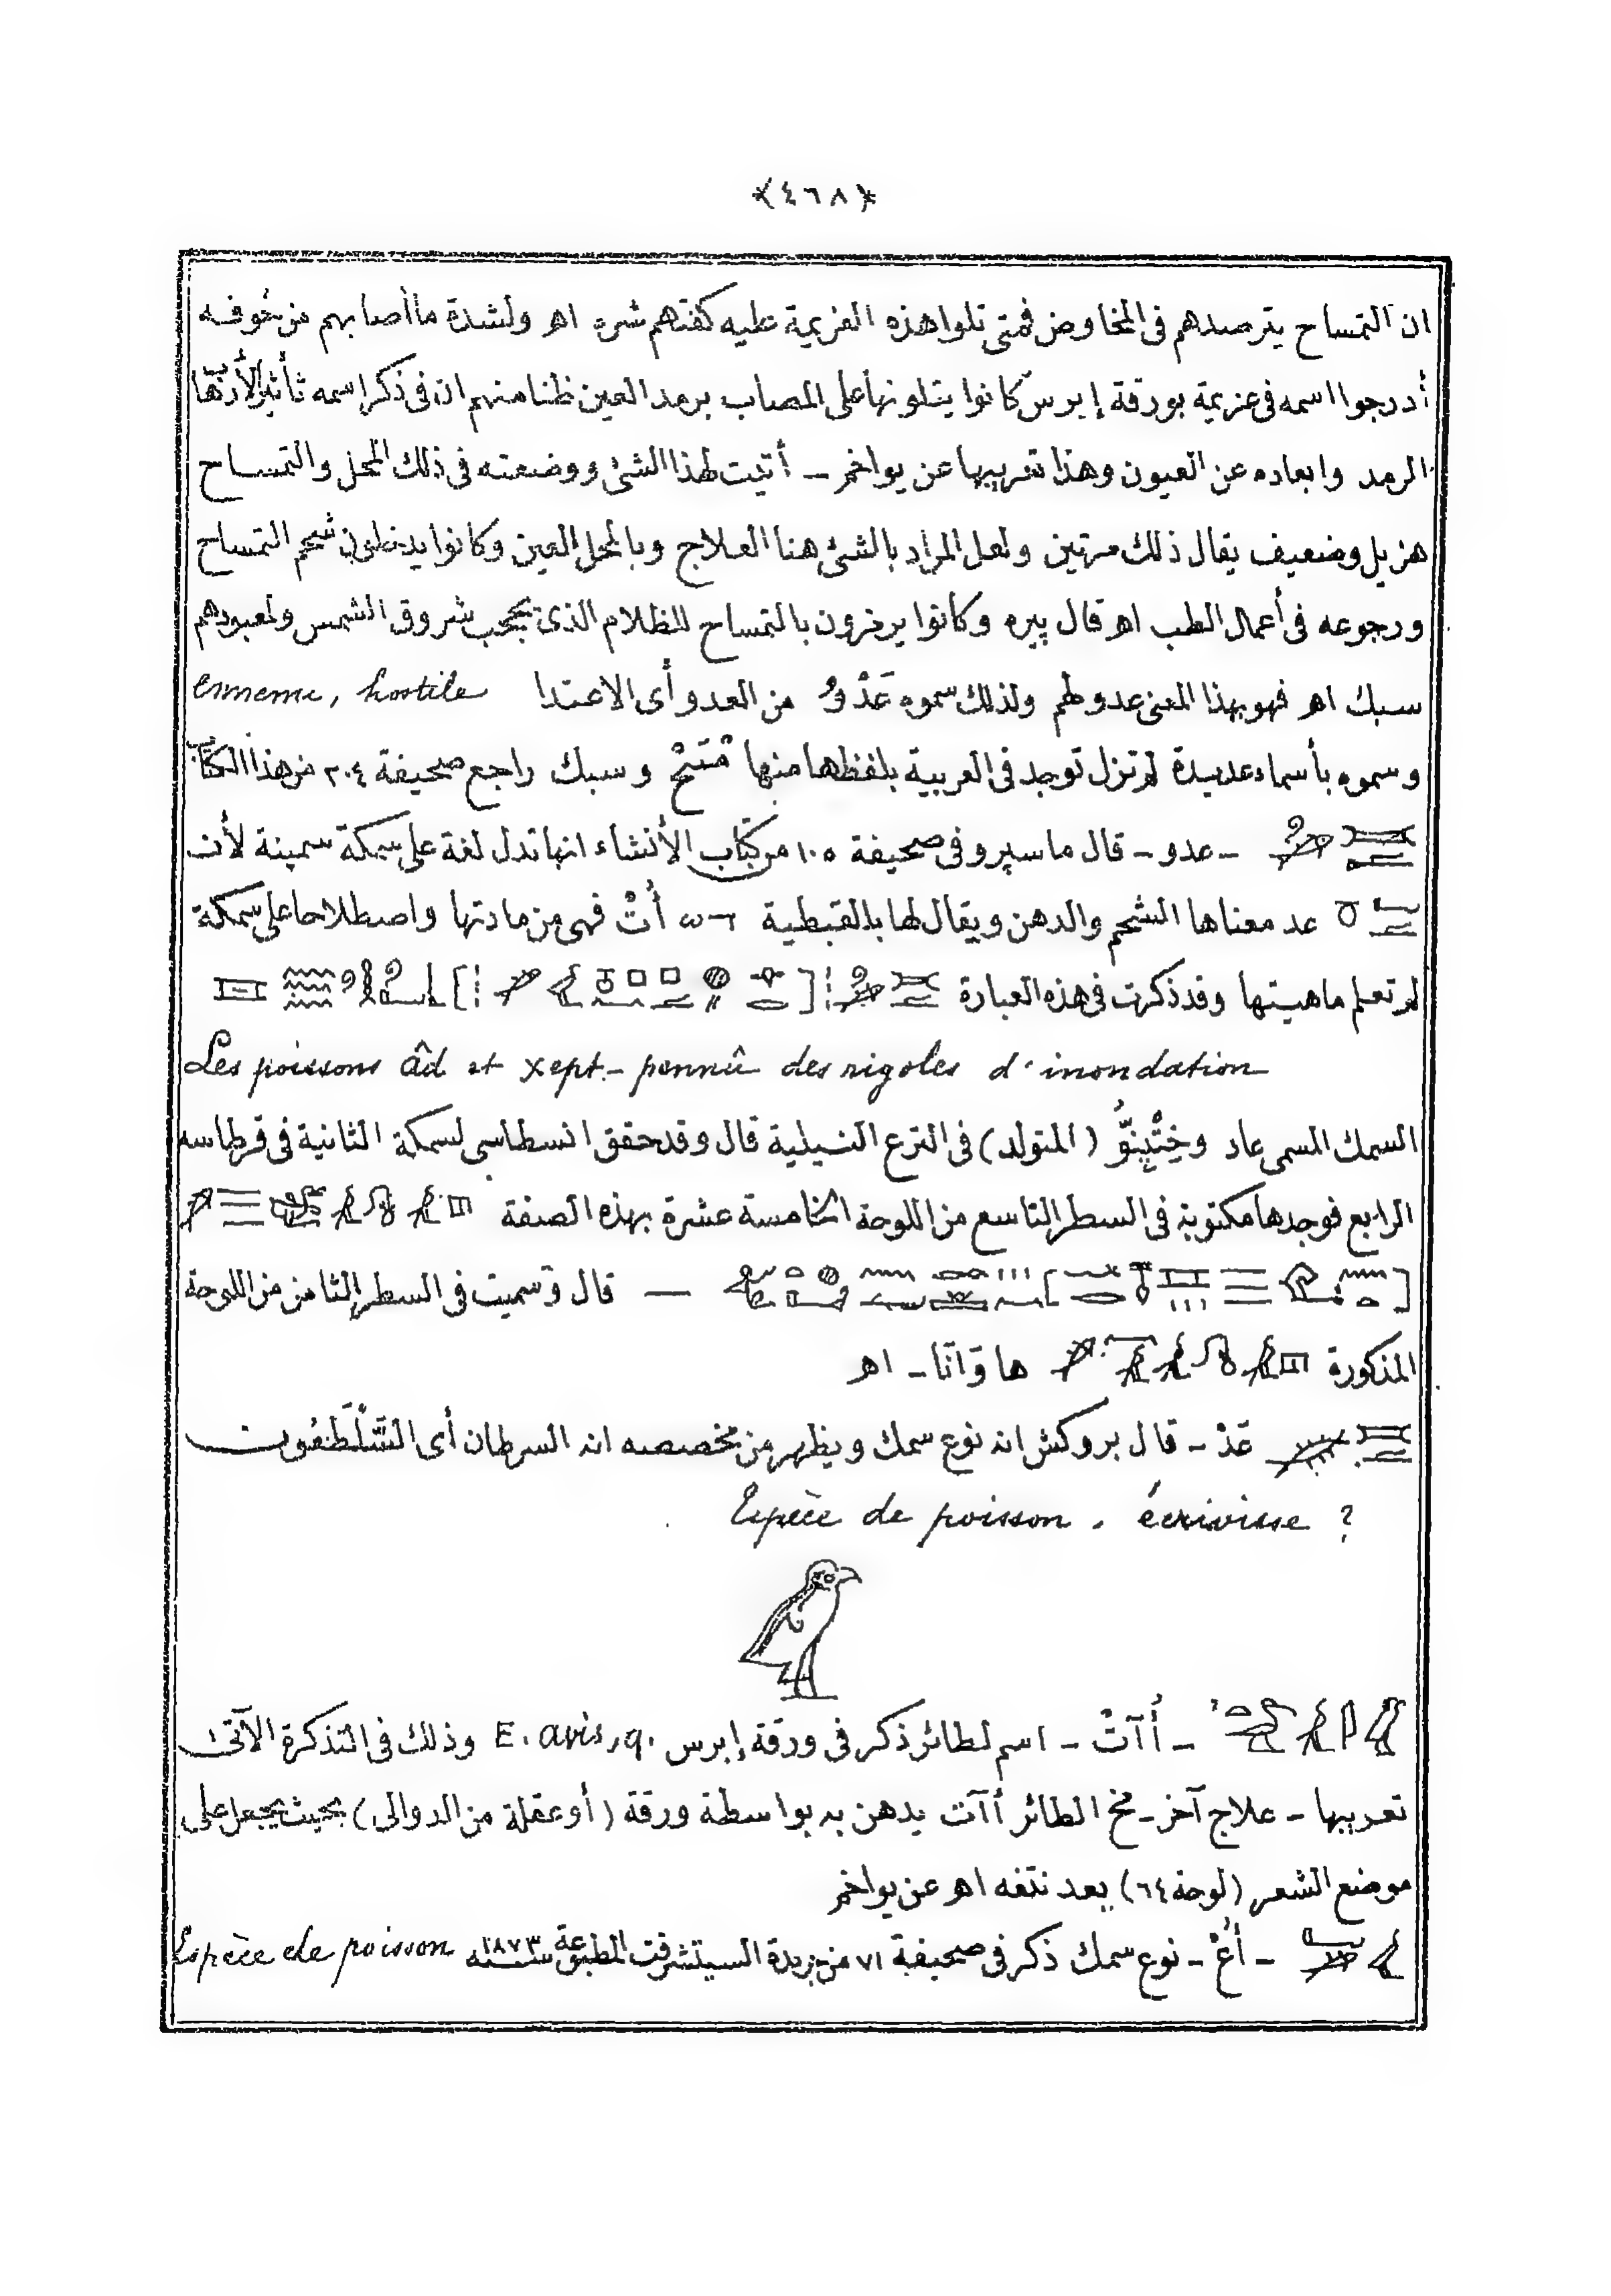 ﴿٤٦٨﴾
ان التمساح يترصدهم فى المخاوض فمتى تلوا هذه العزيمة عليه كفتهم شره اهـ ولشدة ما أصابهم من خوفه
أدرجوا اسمه فى عزيمة بورقة إبرس كانوا يتلونها على المصاب برمد العين ظنا منهم ان فى ذكر اسمه تأثير
الرمد وابعاده عن العيون وهذا تعريبها عن يواخم ـ أتيت لهذا الشئ ووضعته فى ذلك المحل والتمساح
هزيل وضعيف يقال ذلك مرتين ولعل المراد بالشئ هنا العلاج وبالمحل العين وكانوا يدخلون شحم التمساح
ورجوعه فى أعمال الطب اهـ قال پيره وكانوا يرمزون بالتمساح للظلام الذى يحجب شروق الشمس ولمعبودهم
سبك اهـ فهو بهذا المعنى عدو لهم ولذلك سموه عَدْوُ من العدو أى الاعتدا ennemi, hostile
وسموه بأسماء عديدة لم تزل توجد فى العربية بلفظها منها مْسَحْ وسبك راجع صحيفة ٢٠٤ من هذا الكتاب
ـ عدو ـ قال ماسپرو فى صحيفة ١٠٥ من كتاب الأنشاء انها تدل لغة على سمكة سمينة لأن
عد معناها الشحم والدهن ويقال لها بالقبطية ⲱⲧ أُتْ فهى من مادتها واصطلاحا على سمكة
لم تعلم ماهيتها وقد ذكرت فى هذه العبارة
Les poissons âd et xept-pennû des rigoles d'inondation
السمك المسمى عاد وخِتْپِنّوُ (المتولد) فى الترع النيلية قال وقد حقق انسطاسى لسمكة الثانية فى قرطاسه
الرابع فوجدها مكتوبة فى السطر التاسع من اللوحة الخامسة عشرة بهذه الصفة
— قال وسميت فى السطر الثامن من اللوحة
المذكورة ها وَآنّا ـ اهـ
عَدْ ـ قال بروكش انه نوع سمك ويظهر من مخصصه انه السرطان أى السَّلْطَعُون
Espèce de poisson, écrivisse ?
ـ أُآتْ ـ اسم لطائر ذكر فى ورقة إبرس E. avis, q. وذلك فى التذكرة الآتى
تعريبها ـ علاج آخر ـ مخ الطائر أآت يدهن به بواسطة ورقة (أو عقلة من الدوالى) بحيث يجعل على
موضع الشعر (لوحة ٦٤) بعد نتفه اهـ عن يواخم
ـ أُعْ ـ نوع سمك ذكر فى صحيفة ٧١ من جريدة السيتشرفت المطبوعة سنة ١٨٧٣ Espèce de poisson